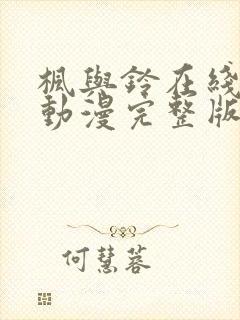 楓與鈴在綫
動漫完整版
何慧蓉